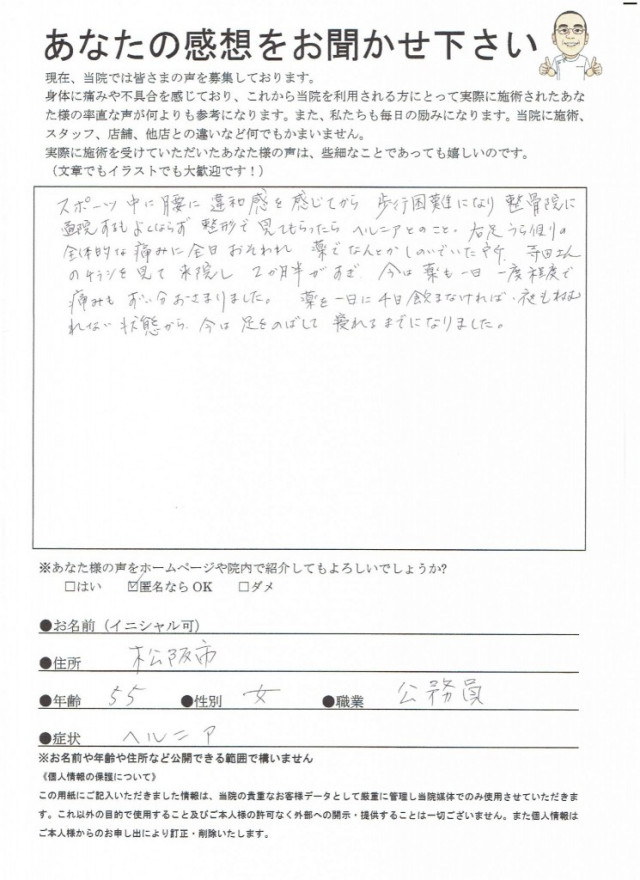 あなたの感想をお聞かせ下さい
現在、当院では皆さまの声を募集しております。
身体に痛みや不具合を感じており、これから当院を利用される方にとって実際に施術されたあな
た様の率直な声が何よりも参考になります。また、私たちも毎日の励みになります。当院に施術、
スタッフ、店舗、他店との違いなど何でもかまいません。
実際に施術を受けていただいたあなた様の声は、些細なことであっても嬉しいのです。
（文章でもイラストでも大歓迎です！）
スポーツ中に腰に違和感を感じてから 歩行困難になり 整骨院に
通院するもよくならず 整形で見てもらったら ヘルニアとのこと、右足うら側の
全体的な痛みに全日おそわれ 薬でなんとかしのいでいた所、寺田さん
のチラシを見て来院し 2か月半がすぎ、今は薬も一日一度程度で
痛みもずい分おさまりました。 薬を一日に4回飲まなければ、夜もねむ
れない状態から、今は足をのばして寝れるまでになりました。
※あなた様の声をホームページや院内で紹介してもよろしいでしょうか?
□はい ☑匿名なら OK □ダメ
●お名前（イニシャル可）
●住所 松阪市
●年齢 55 ●性別 女 ●職業 公務員
●症状 ヘルニア
※お名前や年齢や住所など公開できる範囲で構いません
《個人情報の保護について》
この用紙にご記入いただきました情報は、当院の貴重なお客様データとして厳重に管理し当院媒体でのみ使用させていただきま
す。これ以外の目的で使用すること及びご本人様の許可なく外部への開示・提供することは一切ございません。また個人情報は
ご本人様からのお申し出により訂正・削除いたします。